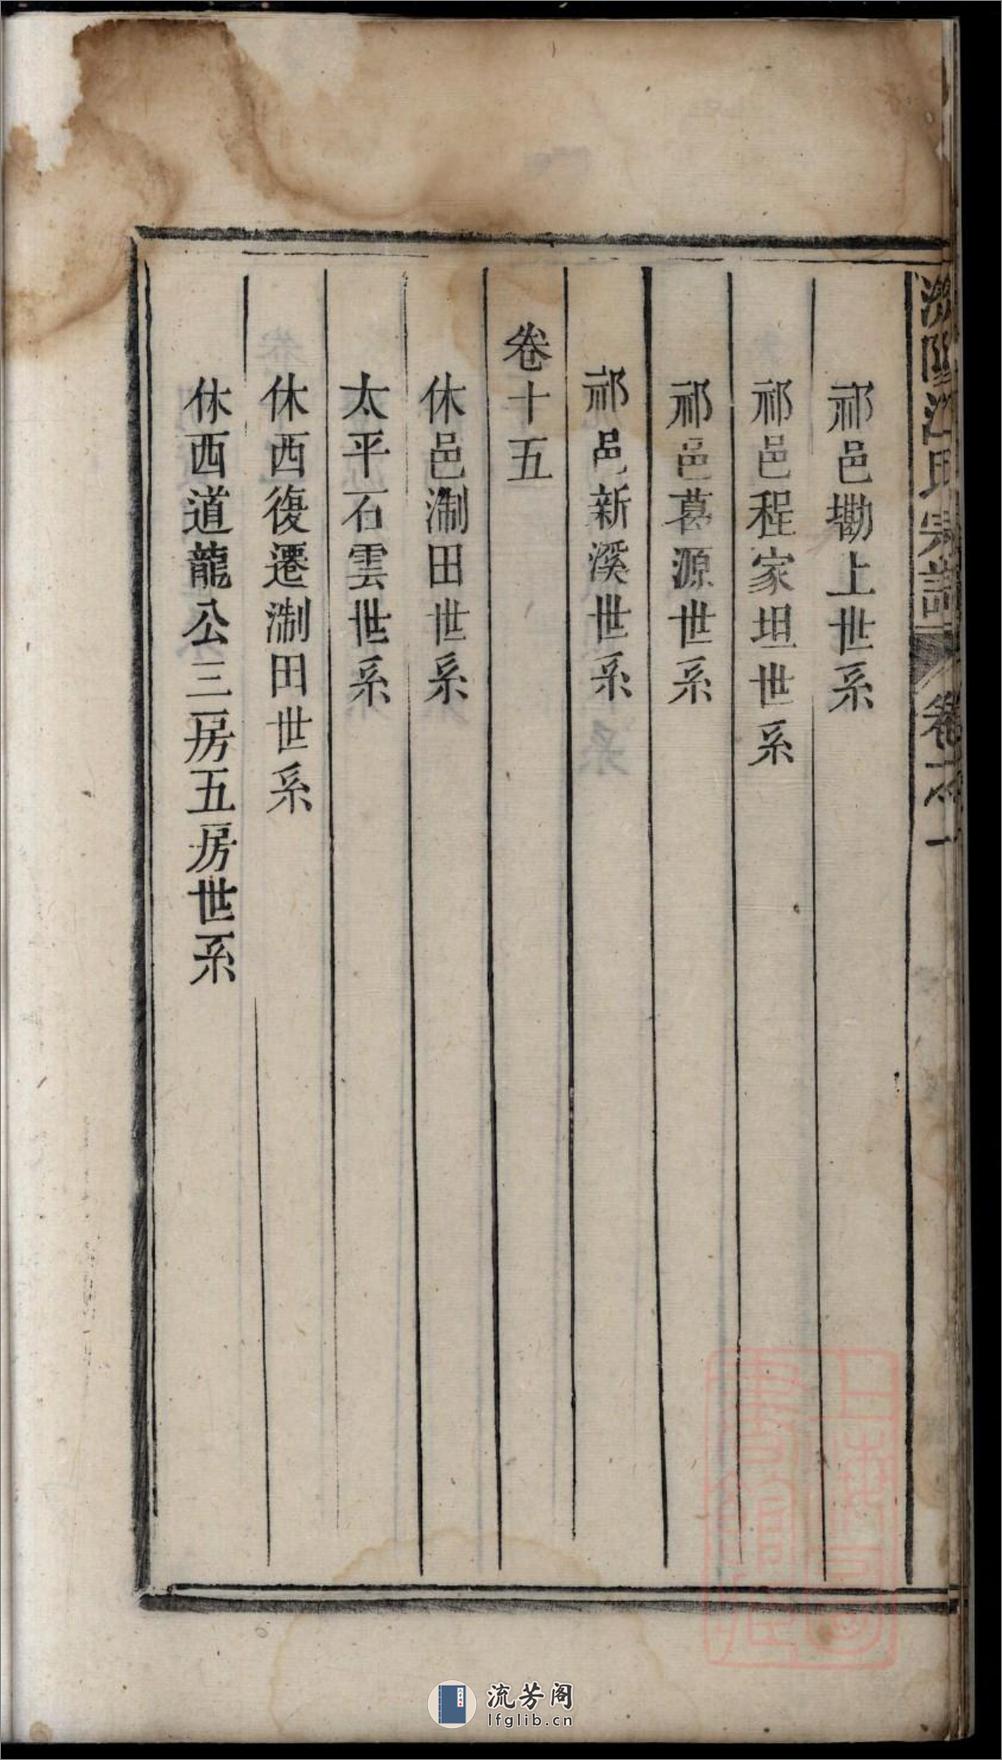 祁邑勤上世系
祁邑程家坦世系
祁邑葛源世系
祁邑新溪世系
卷十五
休邑淛田世系
太平石雲世系
休西復遷淛田世系
休西道龍公三房五房世系
流芳阁
lfglib.cn